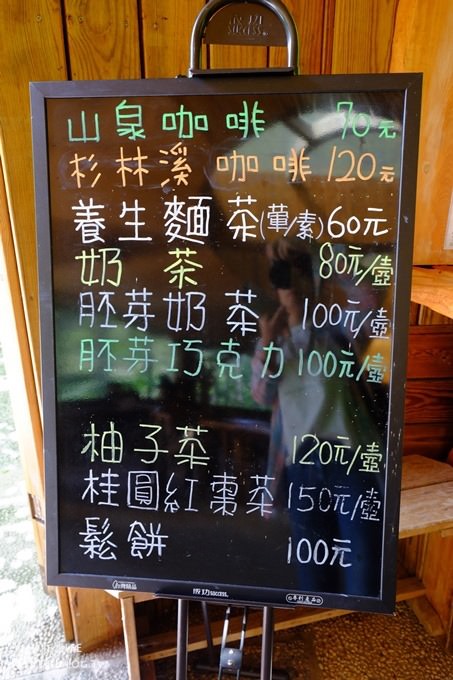 成功
SUCCESS
山泉咖啡 70元
杉林溪咖啡 120元
養生麵茶(葷/素) 60元
奶茶 80元/壺
胚芽奶茶 100元/壺
胚芽巧克力 100元/壺
柚子茶 120元/壺
桂圓紅棗茶 150元/壺
鬆餅 100元
台灣精品
成功 success
專利產品